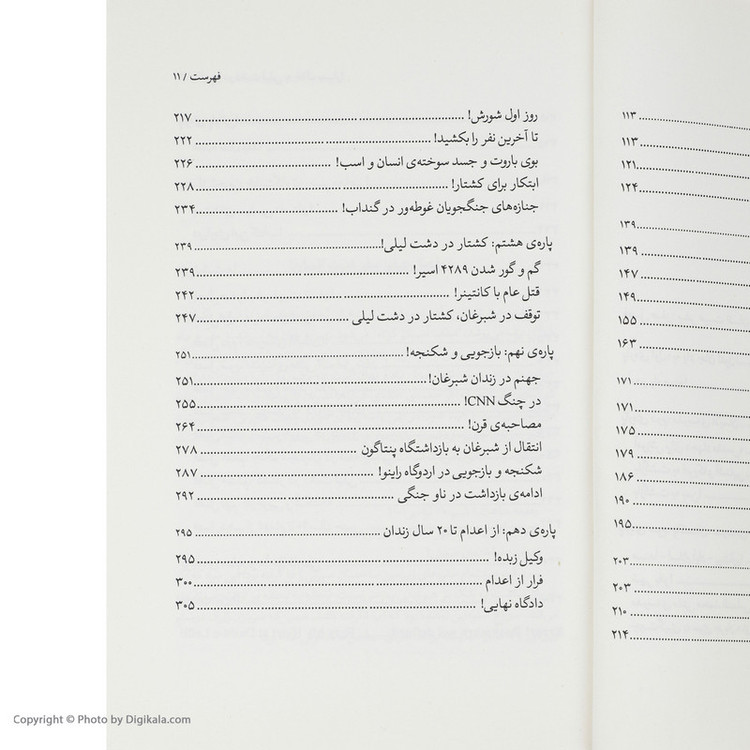 فهرست / ۱۱
روز اول شورش! ........ ۲۱۷
تا آخرین نفر را بکشید! ........ ۲۲۲
بوی باروت و جسد سوخته‌ی انسان و اسب! ........ ۲۲۶
ابتکار برای کشتار! ........ ۲۲۸
جنازه‌های جنگجویان غوطه‌ور در گنداب! ........ ۲۳۴
پاره‌ی هشتم: کشتار در دشت لیلی! ........ ۲۳۹
گم و گور شدن ۴۲۸۹ اسیر! ........ ۲۳۹
قتل عام با کانتینر! ........ ۲۴۲
توقف در شبرغان، کشتار در دشت لیلی ........ ۲۴۷
پاره‌ی نهم: بازجویی و شکنجه! ........ ۲۵۱
جهنم در زندان شبرغان! ........ ۲۵۱
در چنگ CNN! ........ ۲۵۵
مصاحبه‌ی قرن! ........ ۲۶۴
انتقال از شبرغان به بازداشتگاه پنتاگون ........ ۲۷۸
شکنجه و بازجویی در اردوگاه راینو! ........ ۲۸۷
ادامه‌ی بازداشت در ناو جنگی ........ ۲۹۲
پاره‌ی دهم: از اعدام تا ۲۰ سال زندان ........ ۲۹۵
وکیل زبده! ........ ۲۹۵
فرار از اعدام ........ ۳۰۰
دادگاه نهایی! ........ ۳۰۵
۱۱۳
۱۱۳
۱۲۱
۱۲۴
۱۳۹
۱۳۹
۱۴۷
۱۴۹
۱۵۵
۱۶۳
۱۷۱
۱۷۱
۱۷۵
۱۷۹
۱۸۶
۱۹۰
۱۹۵
۲۰۳
۲۰۳
۲۱۰
۲۱۴
Copyright © Photo by Digikala.com